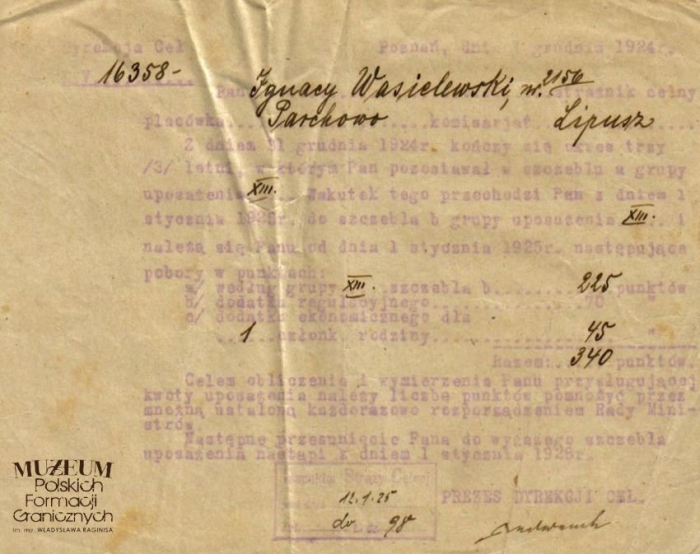 Dyrekcja Ceł Poznań, dnia grudnia 1924r.
16358-
Pan Ignacy Wasielewski, nr. 2156 strażnik celny
placówka Parchowo komisarjat Lipusz
Z dniem 31 grudnia 1924r. kończy się okres trzy
/3/ letni, w którym Pan pozostawał w szczeblu a grupy
uposażenia XIII. Wskutek tego przechodzi Pan z dniem 1
stycznia 1925r. do szczebla b grupy uposażenia XIII. i
należą się Panu od dnia 1 stycznia 1925r. następujące
pobory w punktach:
a/ według grupy XIII. szczebla b 225 punktów
b/ dodatku regulacyjnego 70 "
c/ dodatku ekonomicznego dla
1 członk rodziny 45 "
Razem: 340 punktów.
Celem obliczenia i wymierzenia Panu przysługującej
kwoty uposażenia należy liczbę punktów pomnożyć przez
mnożną ustaloną każdorazowo rozporządzeniem Rady Mini
strów.
Następne przesunięcie Pana do wyższego szczebla
uposażenia nastąpi z dniem 1 stycznia 1928r.
Straży Celnej
12.1.25
98
PREZES DYREKCJI CEŁ.
MUZEUM
Polskich
Formacji
Granicznych
im. mjr. WŁADYSŁAWA RAGINISA